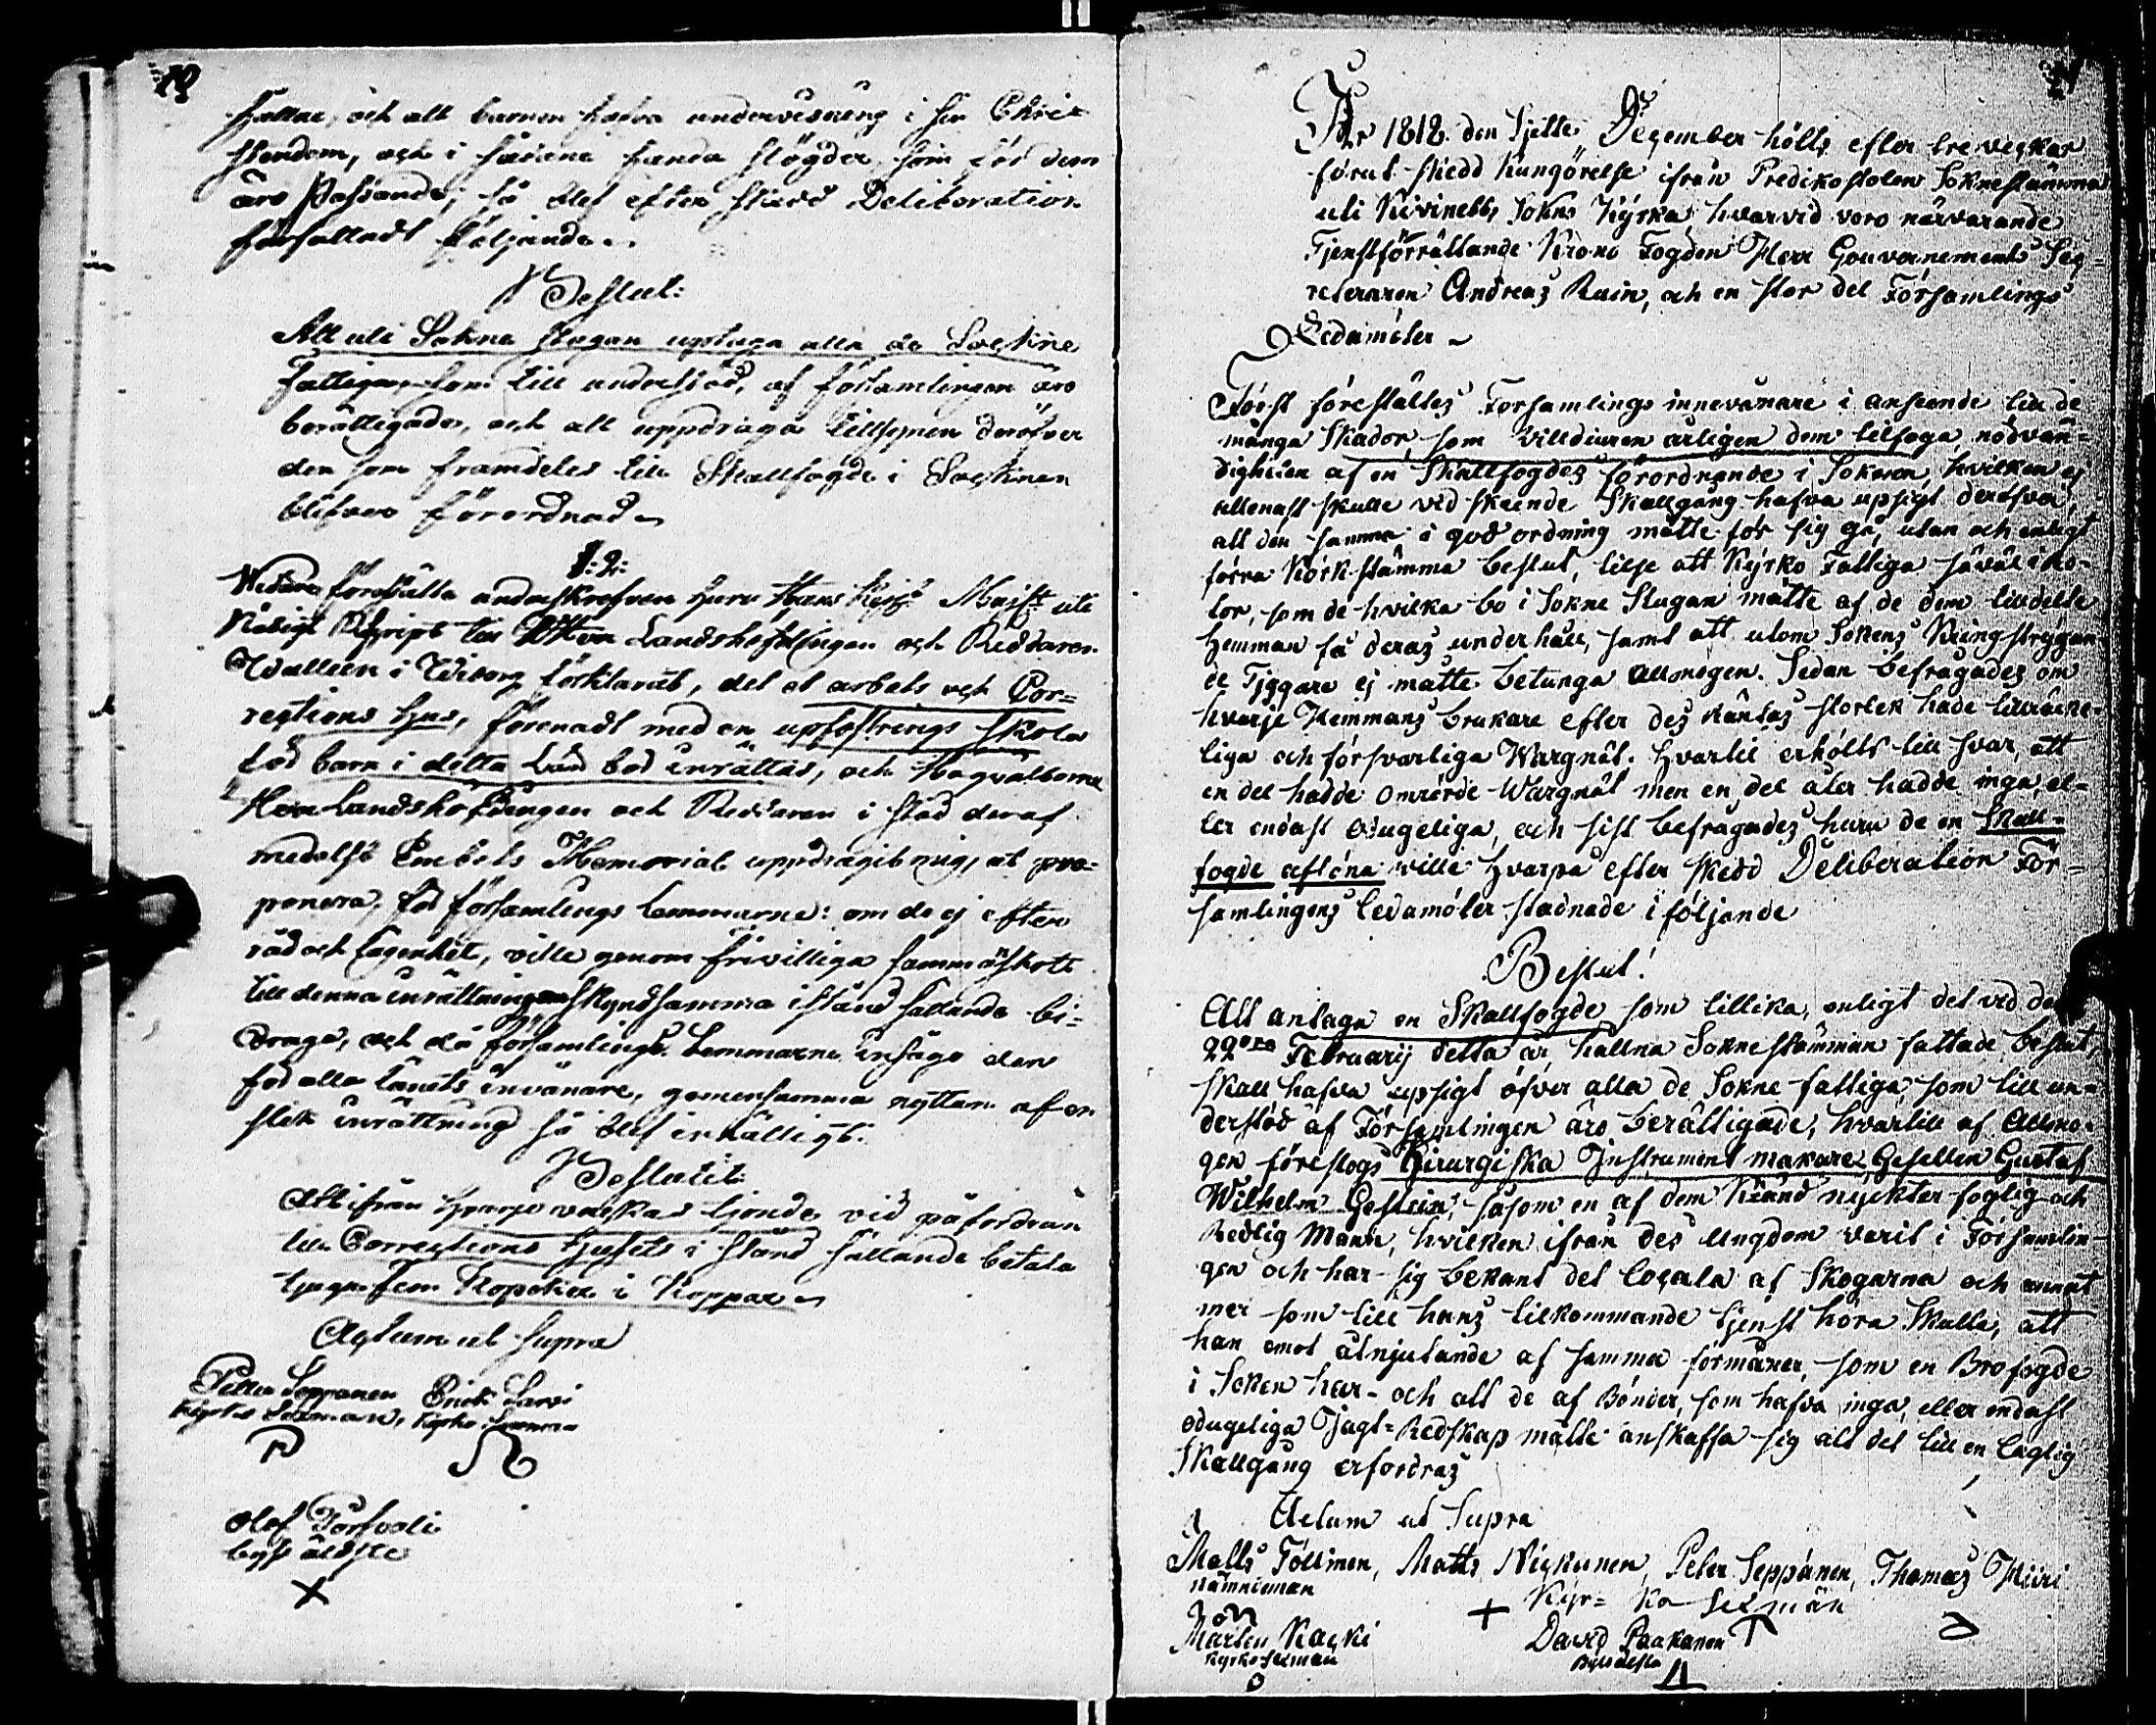 10
hållne, och att barnen hafva undervisning i sin Chri-
stendom, och i sådane handa slögder, som för dem
äro passande; så blef efter skedd Deliberation
författadt följande
Beslut:
Att uti Sokne stugan uptaga alla de Sockne
fattiga som till understöd, af församlingen äro
berättigade, och att uppdraga tillsynen deröfver
den som framdeles till Skallfogde i Socknen
blifver förordnad
§: 2:
Vidare förestälte undertskrefven huru Hans Kejs: Maij:t uti
Nådigt Rescript till Herr Landshöfdingen och Riddaren
Walleen i Wiborg förklarat, det et arbets och Cor-
rections hus, förenadt med en upfostrings skola
för barn i detta Län bör inrättas, och Högvälborne
Herr Landshöfdingen och Riddaren i stöd deraf
medelst Embets Memorial uppdragit mig, at pro-
ponera för församlings lemmarne: om de ej efter
råd och lägenhet, ville genom frivilliga sammanskott
till denna inrättnings skyndsamma i stånd sättande bi-
draga, och då församlings lemmarne insågo den
för alla Länets invånare, gemensamma nyttan af en
slik inrättning så blef enhälligt.
Beslutit
Att ifrån hvarje rökar tionde vid påfordran
till Corrections husets i stånd sättande betala
tjugufem Kopeker i Koppar
Actum ut supra
Petter Seppänen Erick Larvi
Kyrko Sexman, Kyrko Sexman
Olof Torfvoli
bys äldste
X
År 1818 den Sjette Dezember hölts efter tre veckor
förut skedd kungörelse ifrån Predikostolen Soknestämma
uti Kivinebb Sokns Kyrka hvarvid voro närvarande
Tjenstförrättande Krono Fogden Herr Gouvernements Sec-
reteraren Andreas Ruin, och en stor del Församlings
Ledamöter
Först föreställtes Församlings innevånare i anseende till de
många skador, som villdiuren årligen dem tilfoga, nödvän-
digheten af en Skallfogdes förordnande i Soknen, hvilken ej
allenast skulle vid skeende Skallgång hafva upsigt deröfver,
att den samma i god ordning måtte för sig gå, utan och enligt
förra Körk stämma beslut, tilse att Kyrko Fattiga såväl i ro-
tor, som de hvilka bo i Sokne Stugan måtte af de dem tildelte
Hemman få deras underhåll, samt att utom Sokens Kringstrygan-
de Tiggare ej måtte betunga Allmogen. Sedan befrågades om
hvarje Hemmans brukare efter des räntas storlek hade tillräcke-
liga och försvarliga Wargnät. Hvartil erhölts till svar, att
en del hadde omrörde Wargnät men en del åter hadde inga, el-
ler endast odugeliga, och sist befrågades huru de en Skall-
fogde aflöna ville hvarpå efter skedd Deliberation För-
samlingens Ledamöter stadnade i följande
Beslut!
Att antaga en Skallfogde som tillika, enligt det vid den
22dra Februarij detta år hållna Soknestämman fattade beslut,
skall hafva upsigt öfver alla de Sokne fattiga, som till un-
derstöd af Församlingen äro berättigade, hvartill af Allmo-
gen föreslogs Chirurgiska Instrument makare Gesellen Gustaf
Wilhelm Gestrin, såsom en af dem känd nyckter foglig och
Redlig Mann, hvilken ifrån des ungdom varit i Församlin-
gen och har sig bekant det locala af Skogarna och annat
mer som till hans tilkommande tjenst höra Skulle, att
han emot åtnjutande af samma förmåner, som en Brofogde
i Soken har- och att de af Bönder, som hafva inga, eller endast
odugeliga Jagt-Redskap måtte anskaffa sig alt det till en laglig
Skallgång erfordras
Actum ut Supra
Matts Töllinen, Matts Nickunen, Peter Seppänen, Thomas Hiiri
Nämndeman Kyr- ko- sexmän
Mårten Kacki David Paakanen
Kyrko Sexman Bys älsta